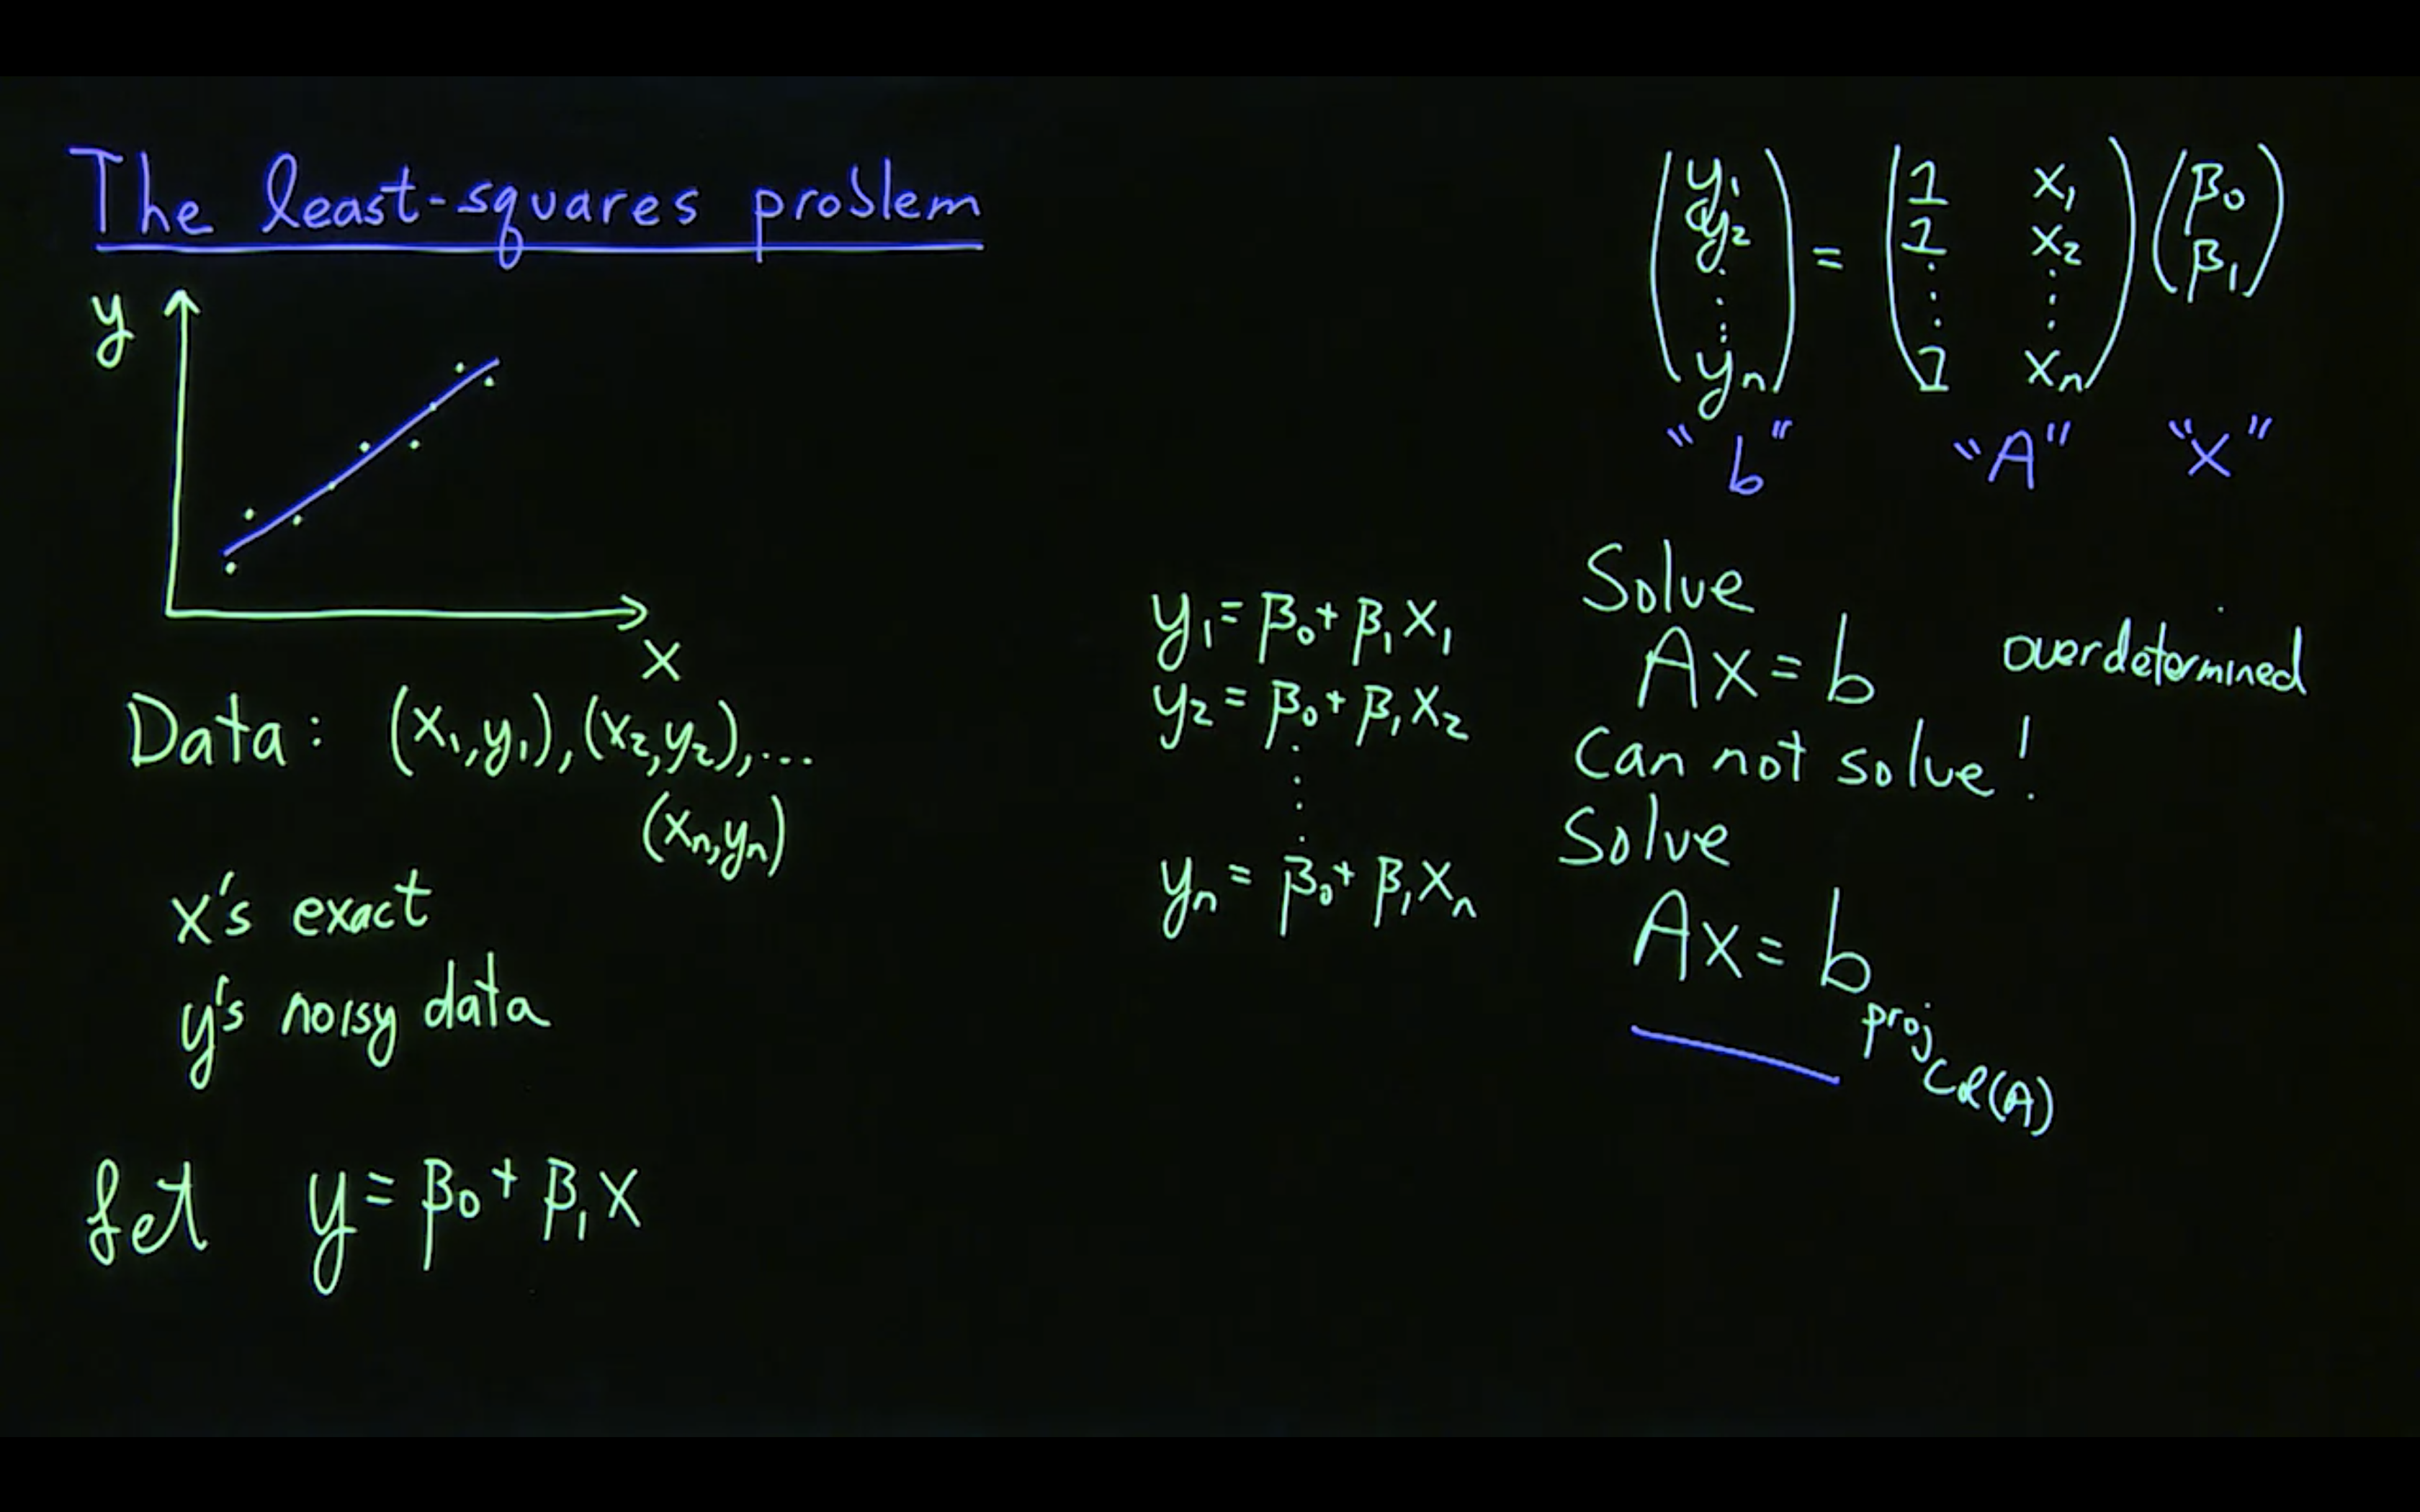 The least-squares problem
y
x
Data: (x₁,y₁),(x₂,y₂),...
(xₙ,yₙ)
x's exact
y's noisy data
y = β₀ + β₁x
y₁ = β₀ + β₁x₁
y₂ = β₀ + β₁x₂
⋮
yₙ = β₀ + β₁xₙ
(y₁ y₂ ⋮ yₙ) = (1 x₁ 1 x₂ ⋮ ⋮ 1 xₙ) (β₀ β₁)
"b" "A" "x"
Solve
Ax = b overdetermined
Can not solve!
Solve
Ax = b proj Col(A)